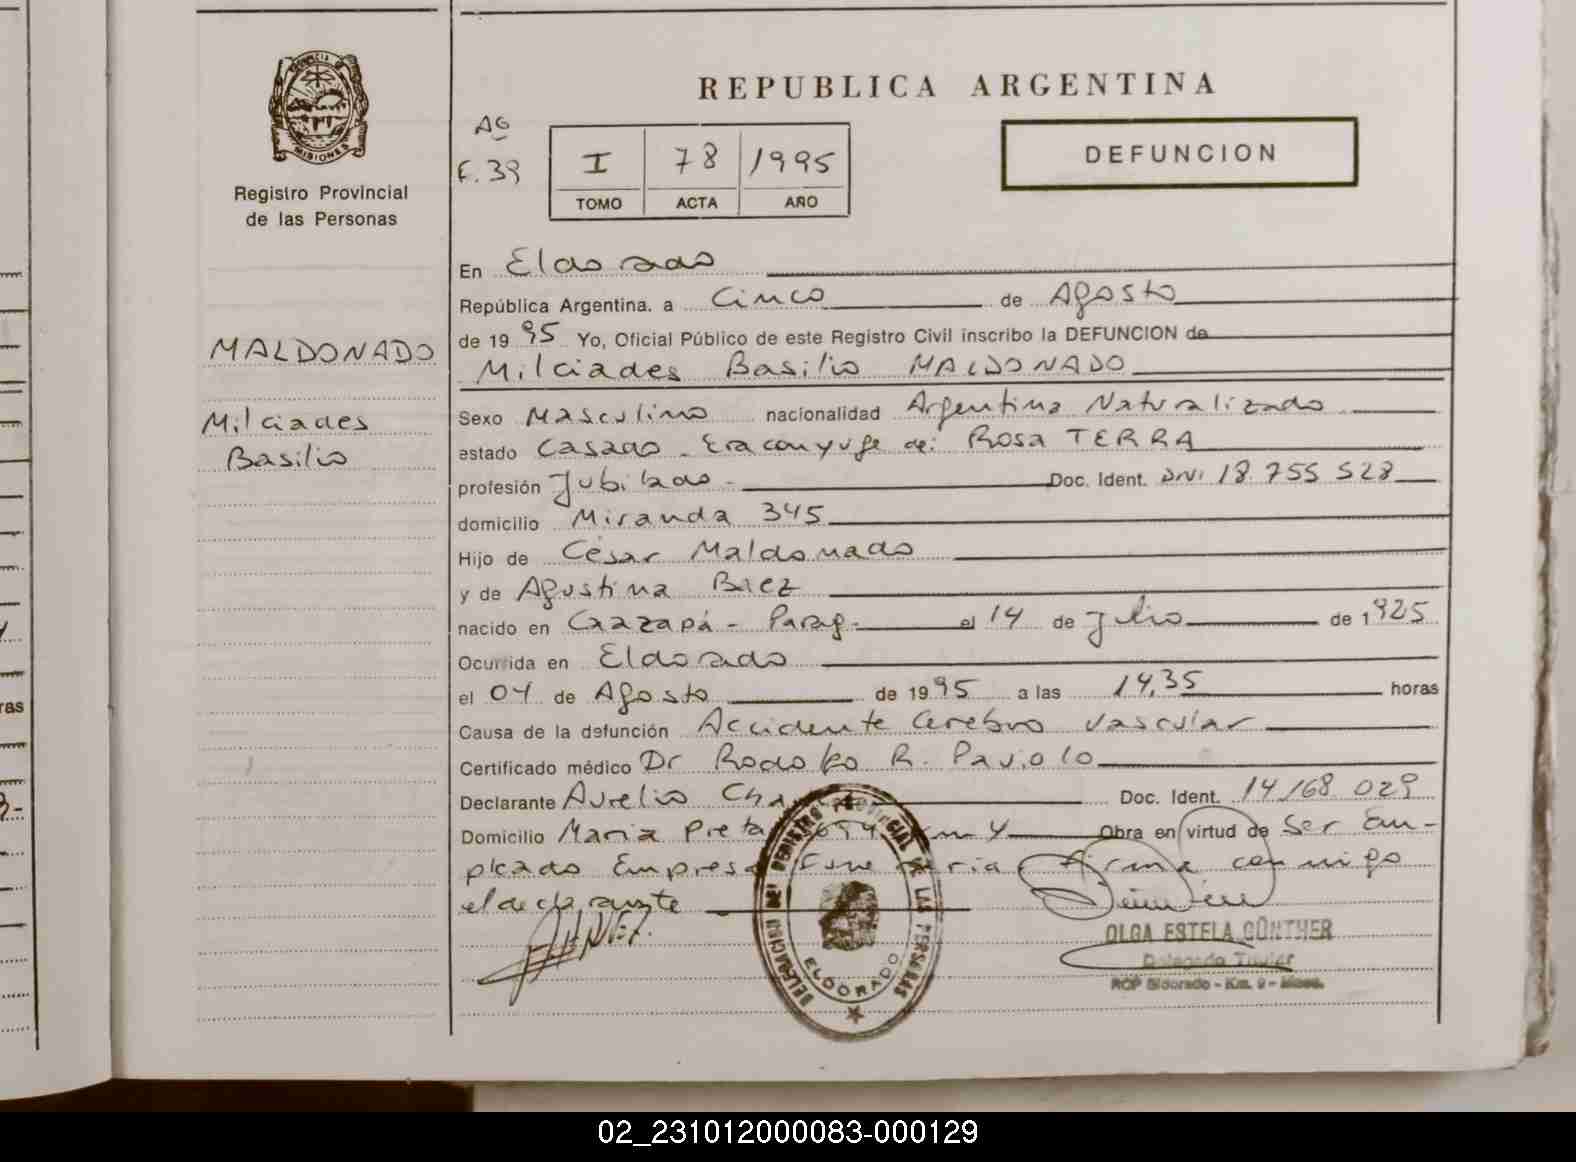 PROVINCIA DE
MISIONES
Registro Provincial
de las Personas
MALDONADO
Milciades
Basilio
REPUBLICA ARGENTINA
AG
F. 39
I 78 1995
TOMO ACTA AÑO
DEFUNCION
En Eldorado
República Argentina, a Cinco de Agosto
de 1995 Yo, Oficial Público de este Registro Civil inscribo la DEFUNCION de
Milciades Basilio MALDONADO
Sexo Masculino nacionalidad Argentina Naturalizado
estado Casado - Era conyuge de: Rosa TERRA
profesión Jubilado - Doc. Ident. DNI 18.755 528
domicilio Miranda 345
Hijo de César Maldonado
y de Agustina Baez
nacido en Caazapá - Parag. el 14 de Julio de 1925
Ocurrida en Eldorado
el 04 de Agosto de 1995 a las 14,35 horas
Causa de la defunción Accidente Cerebro vascular
Certificado médico Dr Rodolfo R. Paviolo
Declarante Aurelio Doc. Ident. 14168 029
Domicilio Maria Preta km 4 Obra en virtud de Ser Em-
pleado Empresa Funeraria Firma conmigo
el declarante
DELEGACION DEL REGISTRO PROVINCIAL DE LAS PERSONAS
ELDORADO
OLGA ESTELA GÜNTHER
Delegada Titular
RCP Eldorado - Km. 9 - Mnes.
02_231012000083-000129